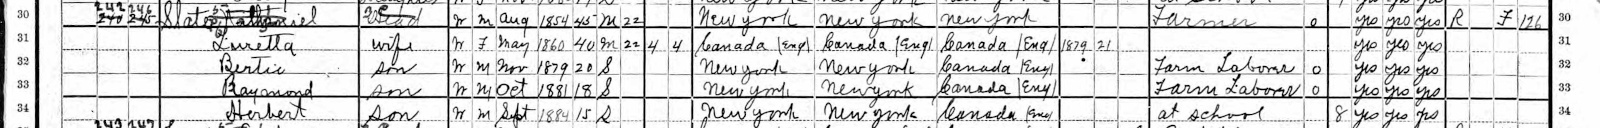 30 240 245 Slater Nathaniel Head W M Aug 1854 45 M 22 New York New York New York Farmer 0 yes yes yes R F 126 30
31 Luretta wife W F May 1860 40 M 22 4 4 Canada (Eng) Canada (Eng) Canada (Eng) 1879 21 yes yes yes 31
32 Bertie son W M Nov 1879 20 S New York New York Canada (Eng) Farm Laborer 0 yes yes yes 32
33 Raymond son W M Oct 1881 18 S New York New York Canada (Eng) Farm Laborer 0 yes yes yes 33
34 Herbert son W M Sept 1884 15 S New York New York Canada (Eng) at school 8 yes yes yes 34